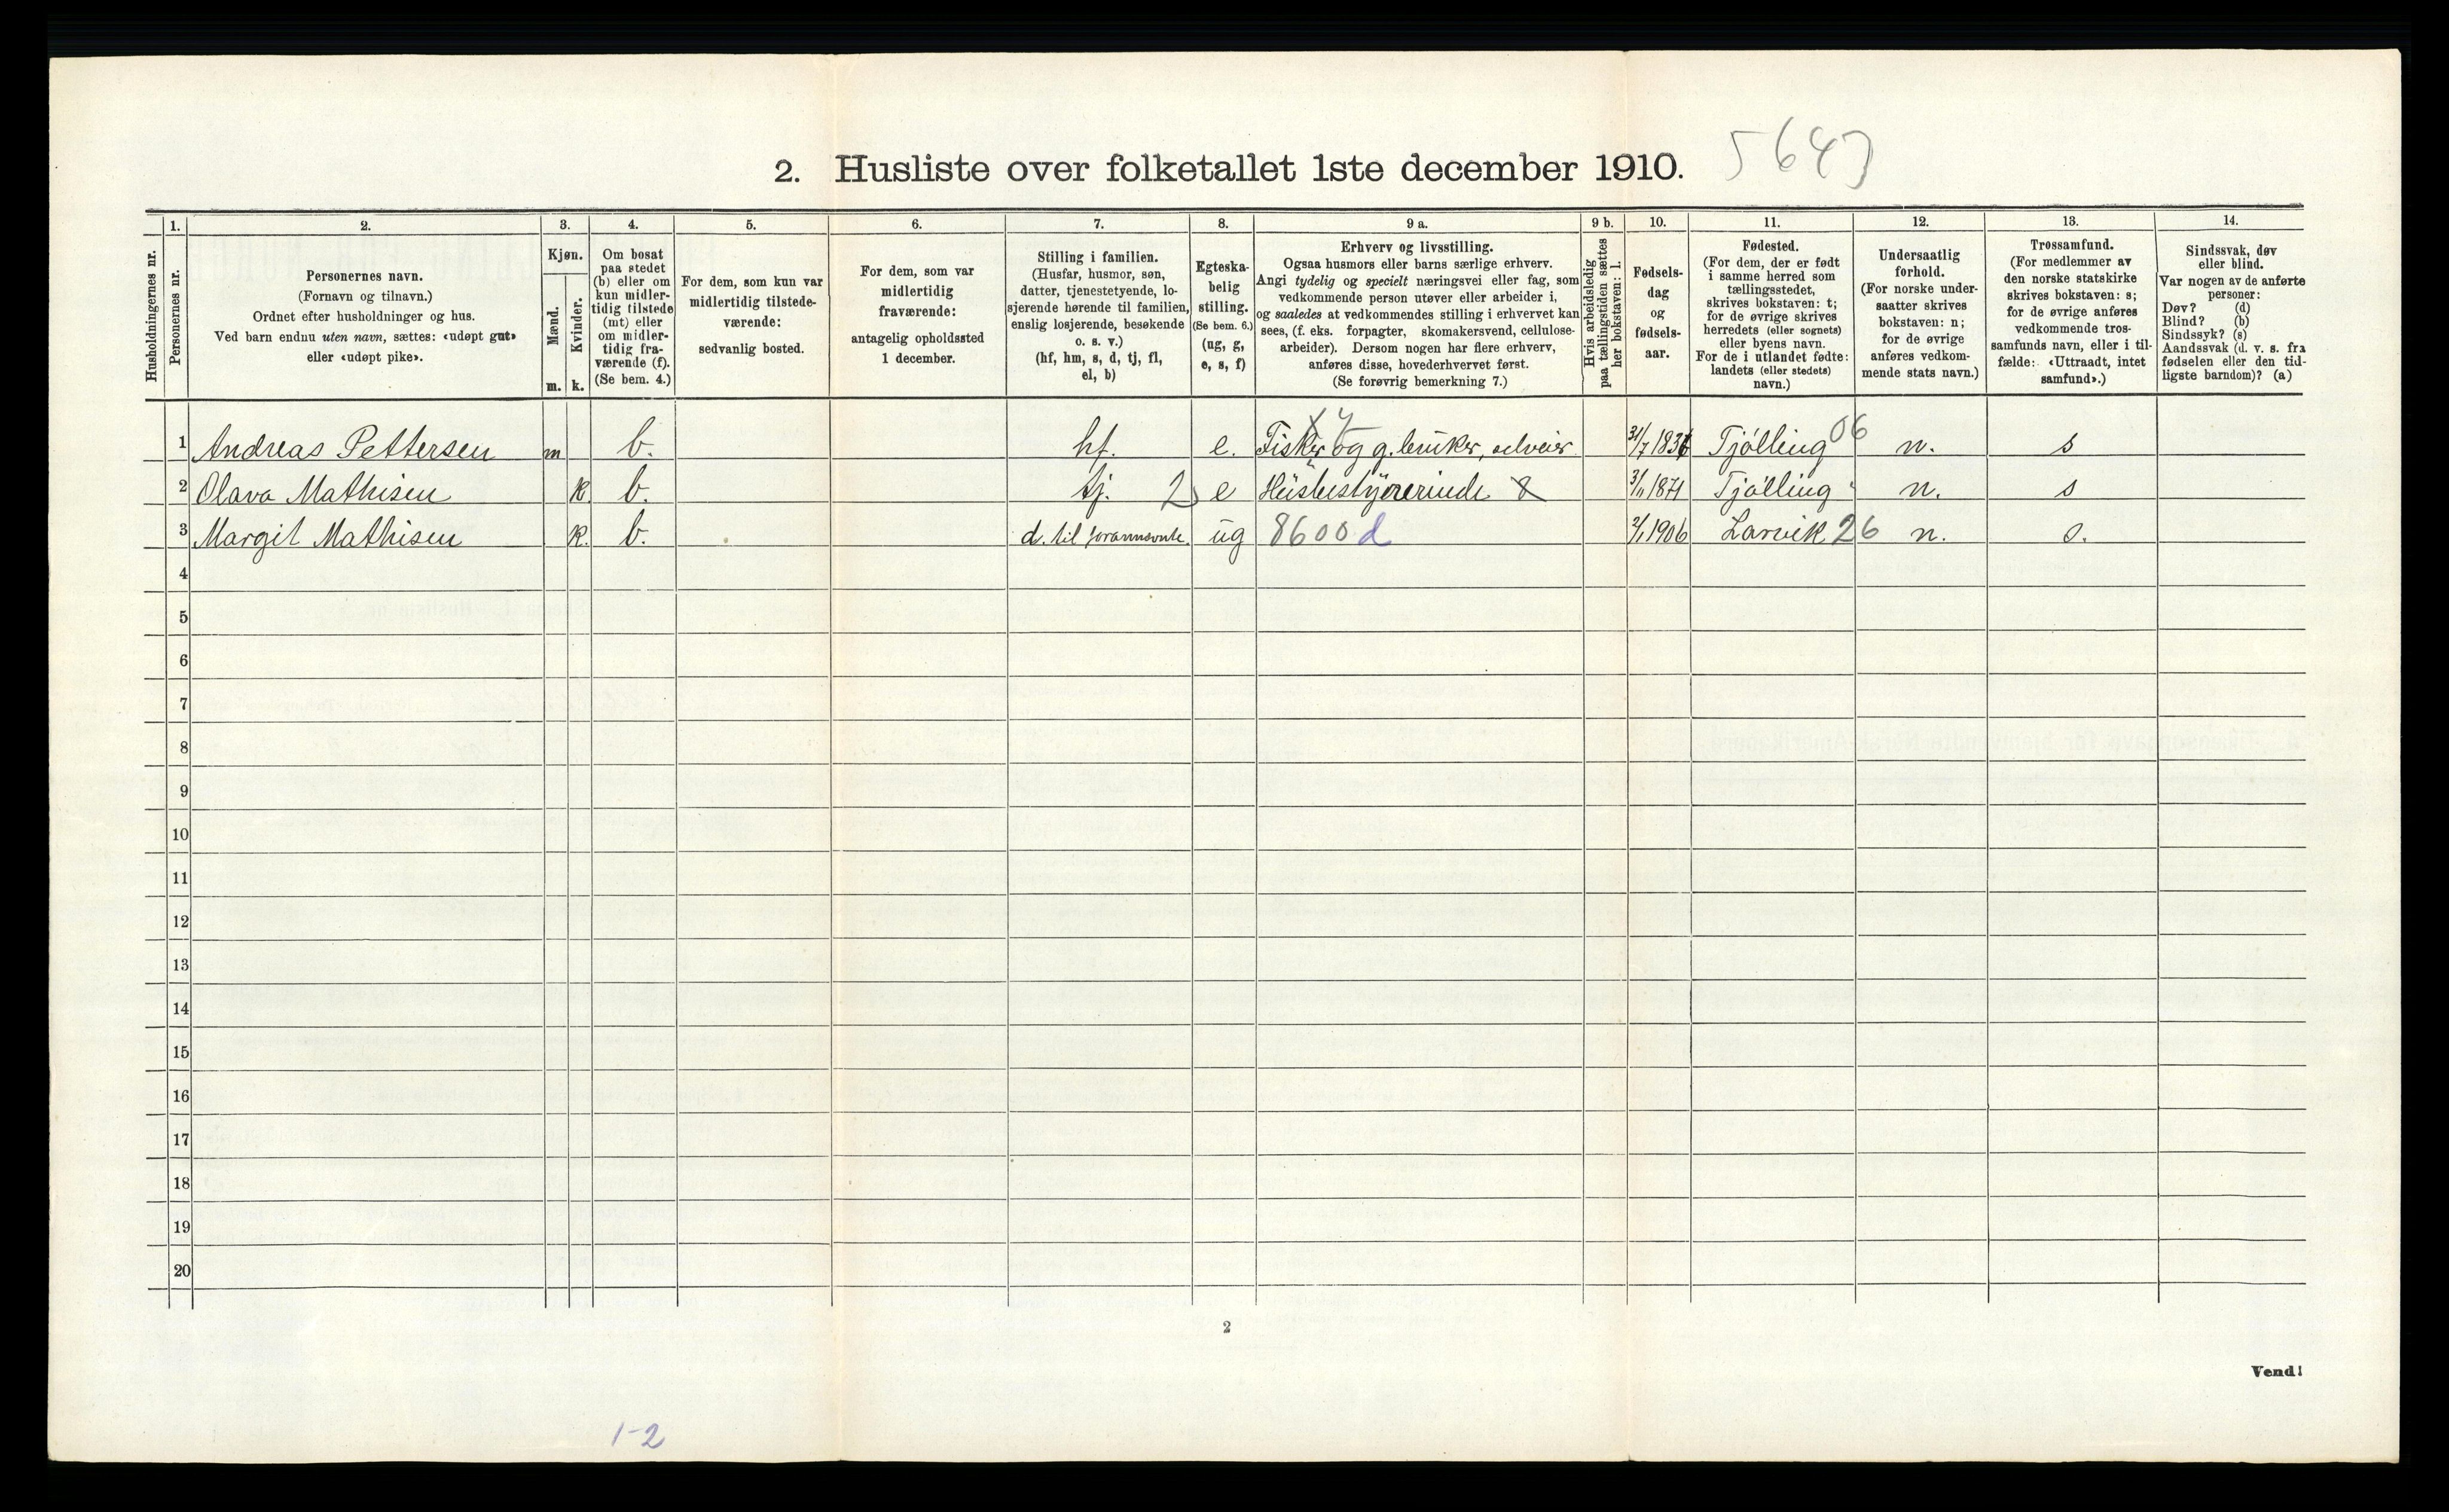 2. Husliste over folketallet 1ste december 1910. 5643
Husholdningernes nr.
1. Personernes nr.
2. Personernes navn.
(Fornavn og tilnavn.)
Ordnet efter husholdninger og hus.
Ved barn endnu uten navn, sættes: «udøpt gut»
eller «udøpt pike».
3. Kjøn.
Mænd. m.
Kvinder. k.
4. Om bosat
paa stedet
(b) eller om
kun midler-
tidig tilstede
(mt) eller
om midler-
tidig fra-
værende (f).
(Se bem. 4.)
5. For dem, som kun var
midlertidig tilstede-
værende:
sedvanlig bosted.
6. For dem, som var
midlertidig
fraværende:
antagelig opholdssted
1 december.
7. Stilling i familien.
(Husfar, husmor, søn,
datter, tjenestetyende, lo-
sjerende hørende til familien,
enslig losjerende, besøkende
o. s. v.)
(hf, hm, s, d, tj, fl,
el, b)
8. Egteska-
belig
stilling.
(Se bem. 6.)
(ug, g,
e, s, f)
9 a. Erhverv og livsstilling.
Ogsaa husmors eller barns særlige erhverv.
Angi tydelig og specielt næringsvei eller fag, som
vedkommende person utøver eller arbeider i,
og saaledes at vedkommendes stilling i erhvervet kan
sees, (f. eks. forpagter, skomakersvend, cellulose-
arbeider). Dersom nogen har flere erhverv,
anføres disse, hovederhvervet først.
(Se forøvrig bemerkning 7.)
9 b. Hvis arbeidsledig
paa tællingstiden sættes
her bokstaven: l.
10. Fødsels-
dag
og
fødsels-
aar.
11. Fødested.
(For dem, der er født
i samme herred som
tællingsstedet,
skrives bokstaven: t;
for de øvrige skrives
herredets (eller sognets)
eller byens navn.
For de i utlandet fødte:
landets (eller stedets)
navn.)
12. Undersaatlig
forhold.
(For norske under-
saatter skrives
bokstaven: n;
for de øvrige
anføres vedkom-
mende stats navn.)
13. Trossamfund.
(For medlemmer av
den norske statskirke
skrives bokstaven: s;
for de øvrige anføres
vedkommende tros-
samfunds navn, eller i til-
fælde: «Uttraadt, intet
samfund».)
14. Sindssvak, døv
eller blind.
Var nogen av de anførte
personer:
Døv? (d)
Blind? (b)
Sindssyk? (s)
Aandssvak (d. v. s. fra
fødselen eller den tid-
ligste barndom)? (a)
1 Andreas Pettersen m b. hf. e. Fisker og g.bruker, selveier Tjölling 06 n. s
2 Olava Mathisen k b. tj. 2 e Husbestyrerinde 3/11 1871 Tjölling n. s
3 Margit Mathisen k. b. d. til ug 8600 d 2/1 1906 Larvik 26 n. s.
4
5
6
7
8
9
10
11
12
13
14
15
16
17
18
19
20
2
Vend!
1-2